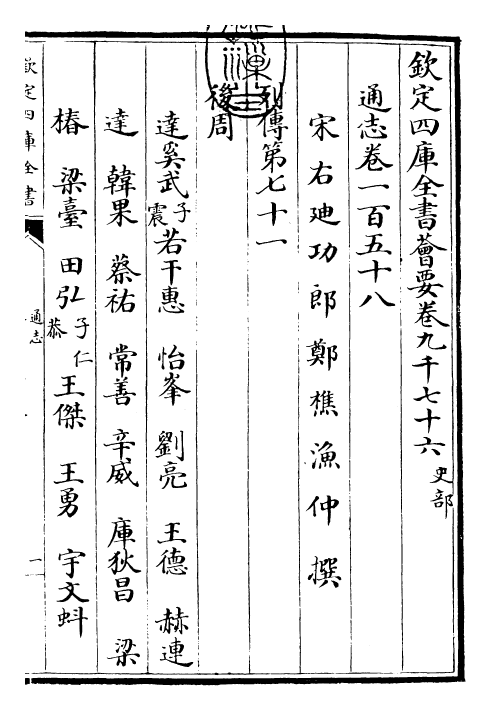 欽定四庫全書薈要卷九千七十六 史部
通志卷一百五十八
宋右迪功郎鄭樵漁仲撰
列傳第七十一
後周
達奚武 子震 若干惠 怡峯 劉亮 王德 赫連
達 韓果 蔡祐 常善 辛威 庫狄昌 梁
椿 梁臺 田弘 子仁恭 王傑 王勇 宇文虯
欽定四庫全書
通志
一